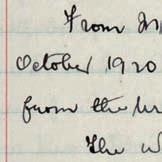 From
October 1920
from the
The